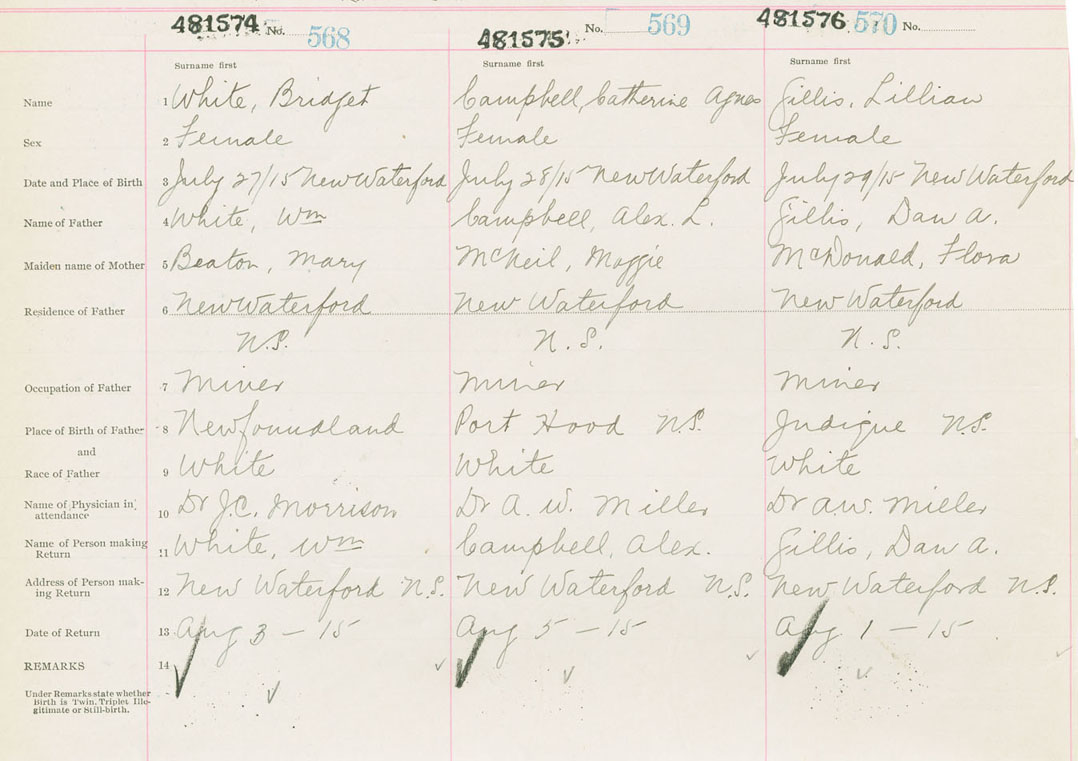 481574 No. 568 481575 No. 569 481576 570 No.
Surname first Surname first Surname first
Name 1 White, Bridget Campbell, Catherine Agnes Gillis, Lillian
Sex 2 Female Female Female
Date and Place of Birth 3 July 27/15 New Waterford July 28/15 New Waterford July 29/15 New Waterford
Name of Father 4 White, Wm Campbell, Alex. L. Gillis, Dan A.
Maiden name of Mother 5 Beaton, Mary McNeil, Maggie McDonald, Flora
Residence of Father 6 New Waterford New Waterford New Waterford
N.S. N.S. N.S.
Occupation of Father 7 Miner Miner Miner
Place of Birth of Father 8 Newfoundland Port Hood N.S. Judique N.S.
and
Race of Father 9 White White White
Name of Physician in
attendance 10 Dr J.C. Morrison Dr A. W. Miller Dr A.W. Miller
Name of Person making
Return 11 White, Wm Campbell, Alex. Gillis, Dan A.
Address of Person mak-
ing Return 12 New Waterford N.S. New Waterford N.S. New Waterford N.S.
Date of Return 13 Aug 3 - 15 Aug 5 - 15 Aug 1 - 15
REMARKS 14
Under Remarks state whether
Birth is Twin. Triplet Ille-
gitimate or Still-birth.